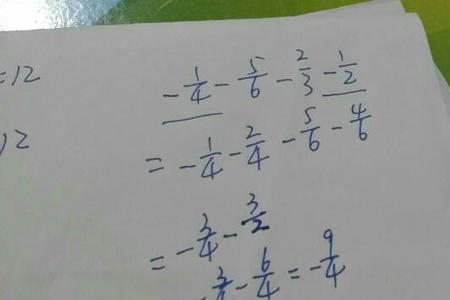 =12
-1/4 - 5/6 - 2/3 - 1/2
12
= -1/4 - 2/4 - 5/6 - 4/6
= -3/4 - 3/2
3/4 - 6/4 = -9/4